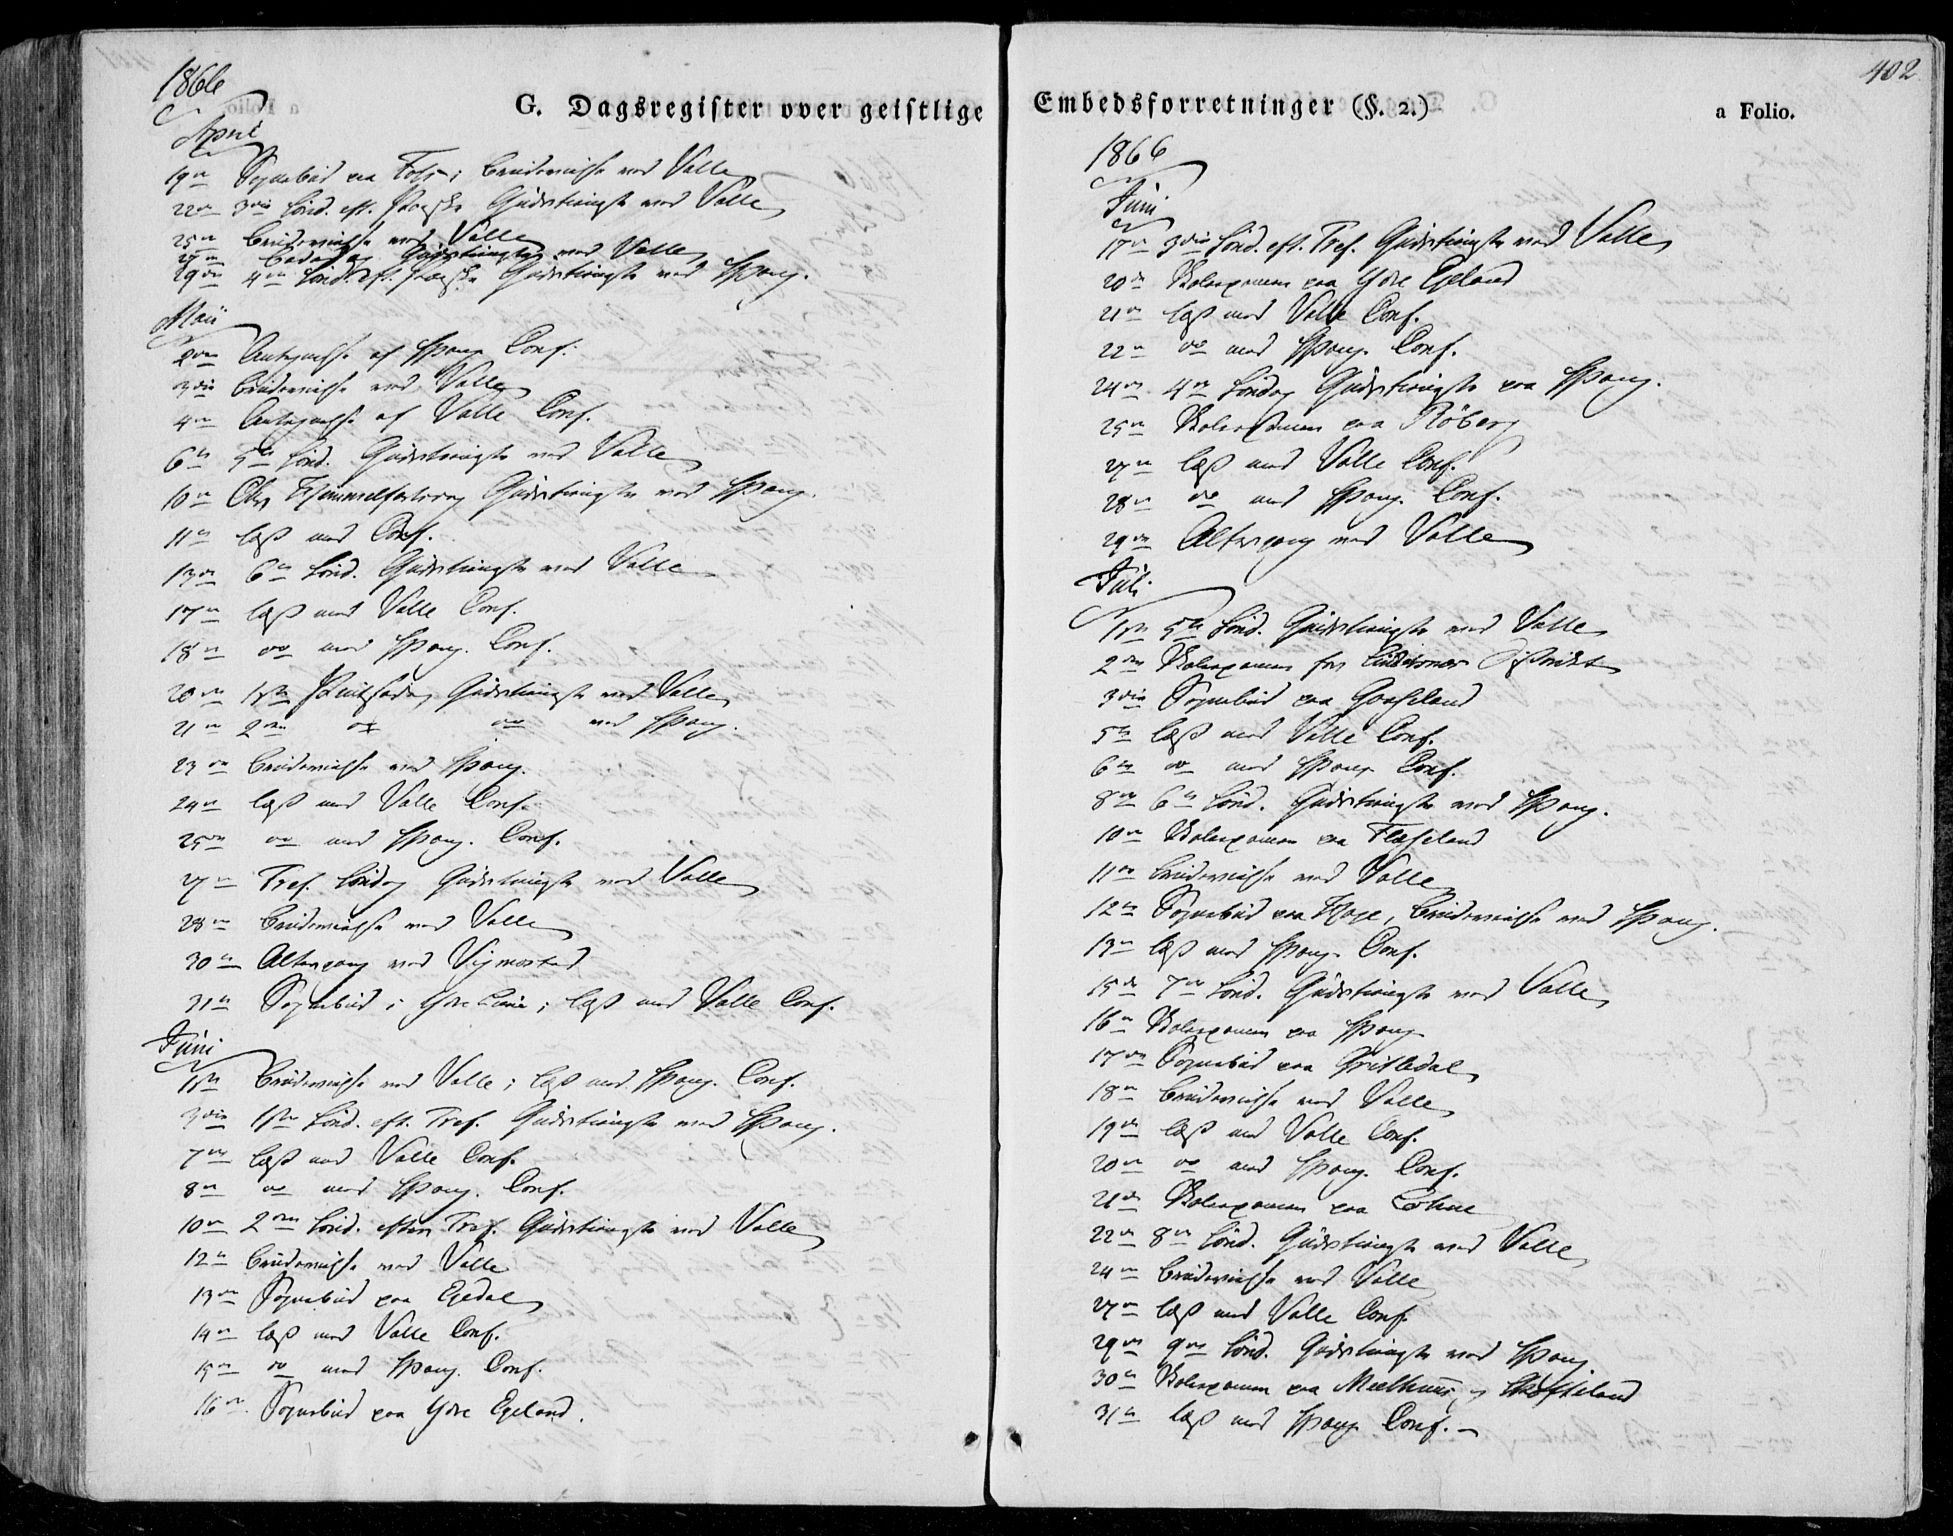 1866
G. Dagsregister over geistlige
April
19de Sognebud paa Foss; Brudevielse ved Valle
22de 3die Sönd. eft. Paaske Gudstieneste ved Valle
25de Brudevielse ved Valle
27de Bededag Gudstieneste ved Valle
29de 4de Sönd. eft. Paaske Gudstieneste ved Spang.
Maii
2den Antegnelse af Spang. Conf.
3die Brudevielse ved Valle
4de Antegnelse af Valle Conf.
6te 5te Sönd. Gudstieneste ved Valle
10de Chr. Himmelfartsdag Gudstieneste ved Spang.
11te læst med Conf.
13de 6te Sönd. Gudstieneste ved Valle
17de læst med Valle Conf.
18de do med Spang. Conf.
20de 1ste Pintsedag Gudstieneste ved Valle
21de 2den do do ved Spang.
23de Brudevielse ved Spang.
24de læst med Valle Conf.
25de do med Spang. Conf.
27de Tref. Söndag Gudstieneste ved Valle
28de Brudevielse ved Valle
30te Altergang ved Vigmostad
31te Sognebud i Ydre; læst med Valle Conf.
Juni
1ste Brudevielse ved Valle; læst med Spang. Conf.
3die 1ste Sönd. eft. Tref. Gudstieneste ved Spang.
7de læst med Valle Conf.
8de do med Spang. Conf.
10de 2den Sönd. efter Tref. Gudstieneste ved Valle
12te Brudevielse ved Valle
13de Sognebud paa Egedal
14de læst med Valle Conf.
15de do med Spang. Conf.
16de Sognebud paa Ydre Egeland.
402
Embedsforretninger (§. 2.)
a Folio.
1866
Juni
17de 3die Sönd. eft. Tref. Gudstieneste ved Valle
20de Skoleexamen paa Ydre Egeland
21de læst med Valle Conf.
22de do med Spang. Conf.
24de 4de Söndag Gudstieneste paa Spang.
25de Skoleexamen paa Röberg
27de læst med Valle Conf.
28de do med Spang. Conf.
29de Altergang ved Valle
Juli
1ste 5te Sönd. Gudstieneste ved Valle
2den Skoleexamen for Distrikt
3die Sognebud paa
5te læst med Valle Conf.
6te do med Spang. Conf.
8de 6te Sönd. Gudstieneste ved Spang.
10de Skoleexamen paa
11te Brudevielse ved Valle
12te Sognebud paa, Brudevielse ved Spang.
13de læst med Spang. Conf.
15de 7de Sönd. Gudstieneste ved Valle
16de Skoleexamen paa Spang
17de Sognebud paa
18de Brudevielse ved Valle
19de læst med Valle Conf.
20de do med Spang. Conf.
21de Skoleexamen paa Lohne
22de 8de Sönd. Gudstieneste ved Valle
24de Brudevielse ved Valle
27de læst med Valle Conf.
29de 9de Sönd. Gudstieneste ved Spang.
30te Skoleexamen paa Meelhuus og
31te læst med Spang. Conf. -